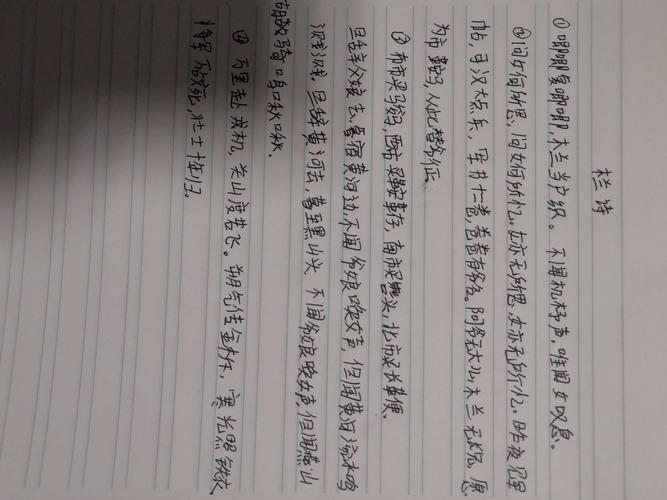 栏诗
①唧唧复唧唧,木兰当户织。不闻机杼声,唯闻女叹息。
②问女何所思,问女何所忆。女亦无所思,女亦无所忆。昨夜见军
帖,可汗大点兵,军书十二卷,卷卷有爷名。阿爷无大儿,木兰无长兄,愿
为市鞍马,从此替爷征。
③市买骏马,西市买鞍鞯,南市买辔头,北市买长鞭。
旦辞爷娘去,暮宿黄河边,不闻爷娘唤女声,但闻黄河流水鸣
溅溅。旦辞黄河去,暮至黑山头,不闻爷娘唤女声,但闻燕山
胡骑鸣啾啾。
④万里赴戎机,关山度若飞。朔气传金柝,寒光照铁衣
将军百战死,壮士十年归。